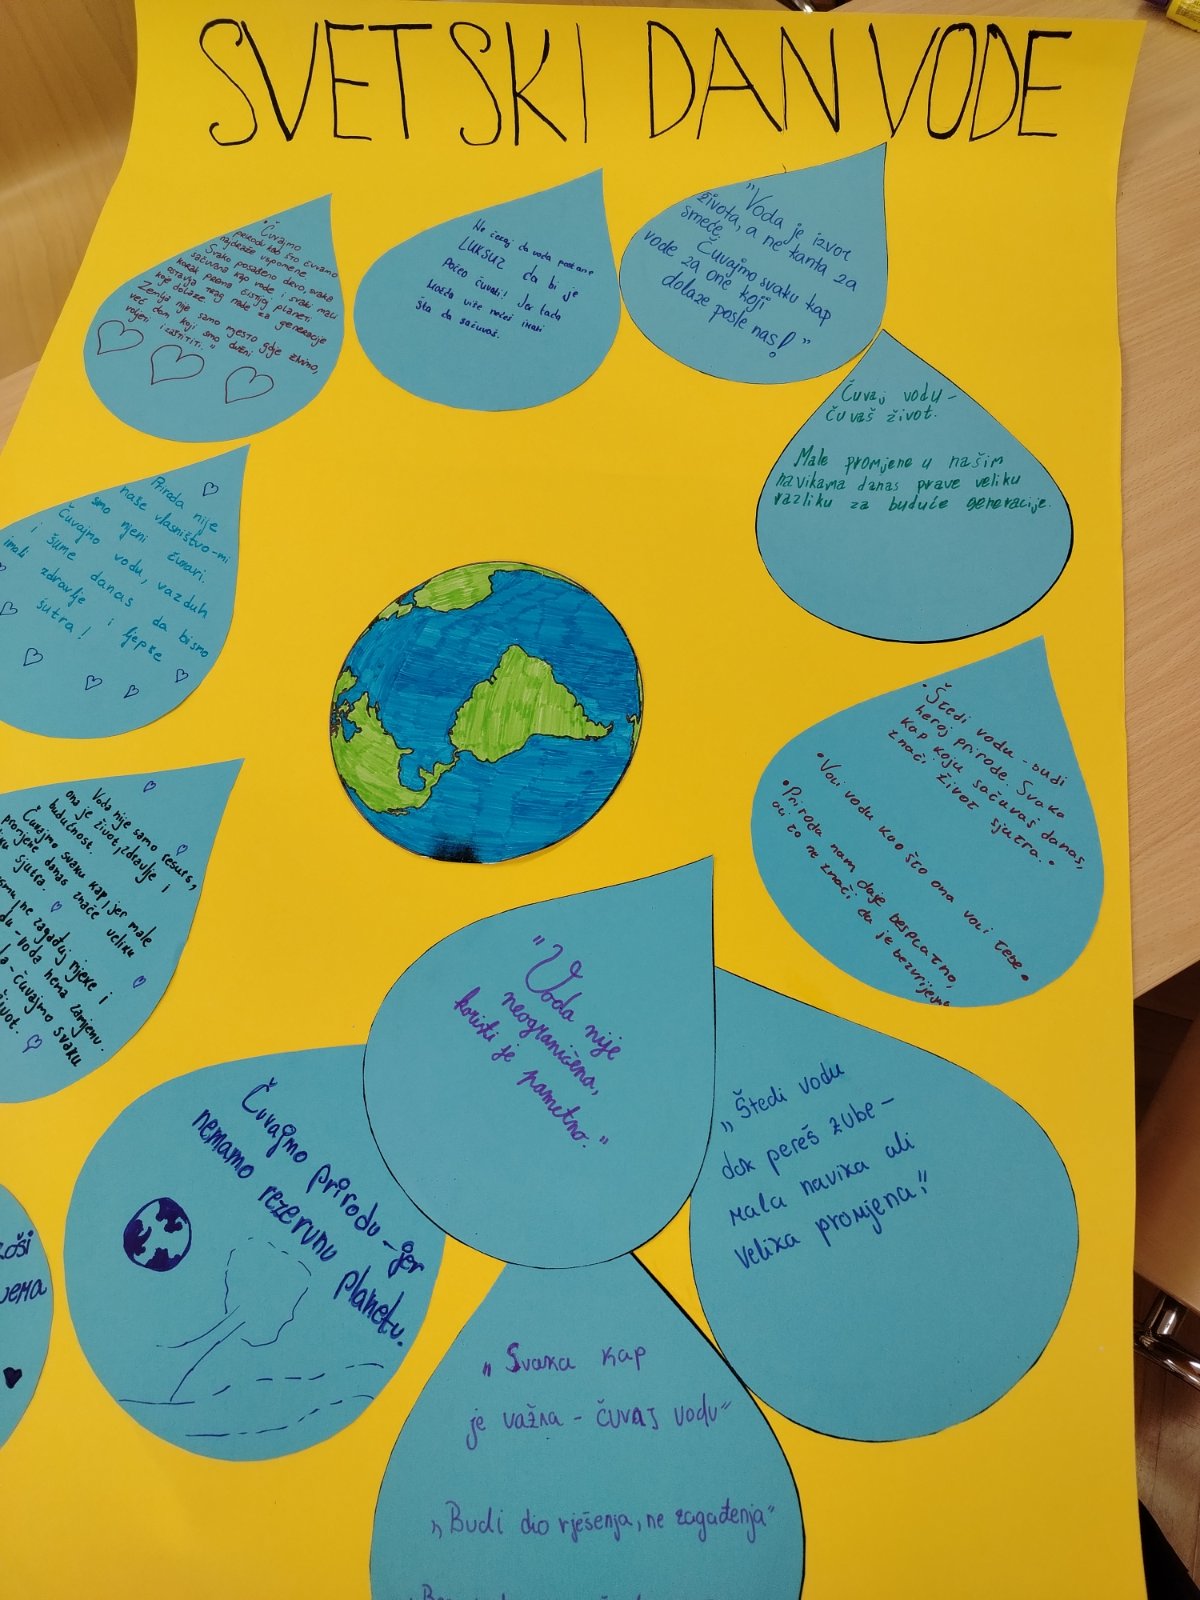 SVETSKI DAN VODE
"Čuvajmo
prirodu kao što čuvamo
najdraže uspomene
Svako posađeno drvo, svaka
sačuvana kap vode i svaki mali
korak prema čistijoj planeti
ostavlja trag nade za generacije
koje dolaze.
Zemlja nije samo mjesto gdje živimo,
već dom koji smo dužni
voljeti i zaštititi."
Ne čekaj da voda postane
LUKSUZ da bi je
počeo čuvati! Jer tada
možda više nećeš imati
šta da sačuvaš.
"Voda je izvor
života, a ne kanta za
smeće. Čuvajmo svaku kap
vode za one koji
dolaze posle nas!"
Čuvaj vodu -
čuvaš život.
Male promjene u našim
navikama danas prave veliku
razliku za buduće generacije.
Priroda nije
naše vlasništvo-mi
smo njeni čuvari.
Čuvajmo vodu, vazduh
i šume danas da bismo
imali zdravlje i ljepše
sutra!
• Štedi vodu - budi
heroj prirode. Svaka
kap koju sačuvaš danas,
znači život sjutra. •
• Voli vodu kao što ona voli tebe •
• Priroda nam daje besplatno,
ali to ne znači da je bezvrijedna
Voda nije samo resurs,
ona je život, zdravlje i
budućnost.
Čuvajmo svaku kap, jer male
promjene danas znače veliku
sjutra.
ne zagađuj rijeke i
voda nema zamjenu.
čuvajmo svaku
život.
"Voda nije
neograničena,
koristi je pametno."
„Štedi vodu
dok pereš zube -
mala navika ali
velika promjena."
Čuvajmo prirodu - jer
nemamo rezervnu planetu.
„Svaka kap
je važna - čuvaj vodu"
„Budi dio rješenja, ne zagađenja"